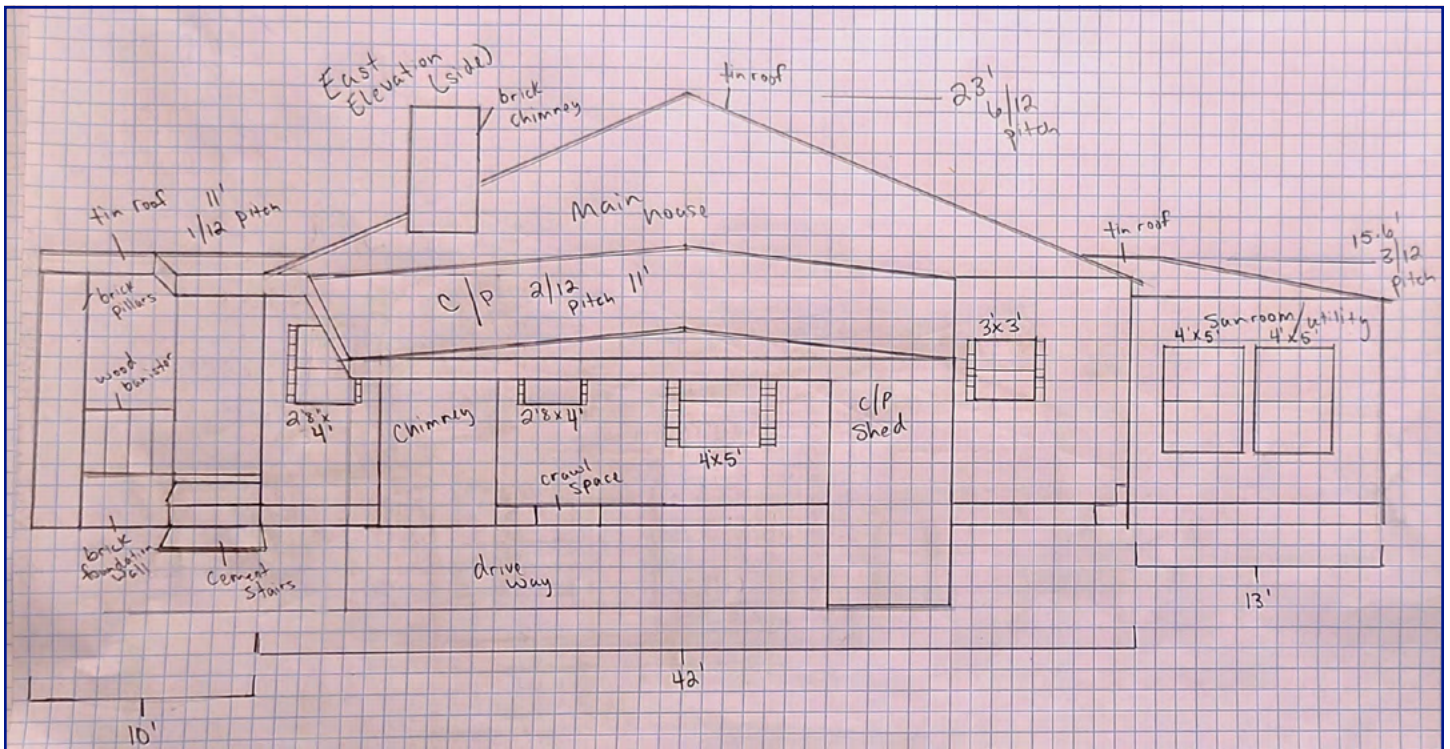 East
Elevation
(side)
brick
chimney
tin roof
23'
6/12
pitch
tin roof
11'
1/12 pitch
Main
house
tin roof
15.6'
3/12
pitch
brick
pillars
C/P
2/12
pitch
11'
Sunroom/utility
3'x3'
4'x5'
4'x5'
wood
banister
2'8"x
4'
Chimney
2'8x4'
4x5'
C/P
Shed
crawl
space
brick
foundation
wall
cement
stairs
drive
way
13'
42'
10'